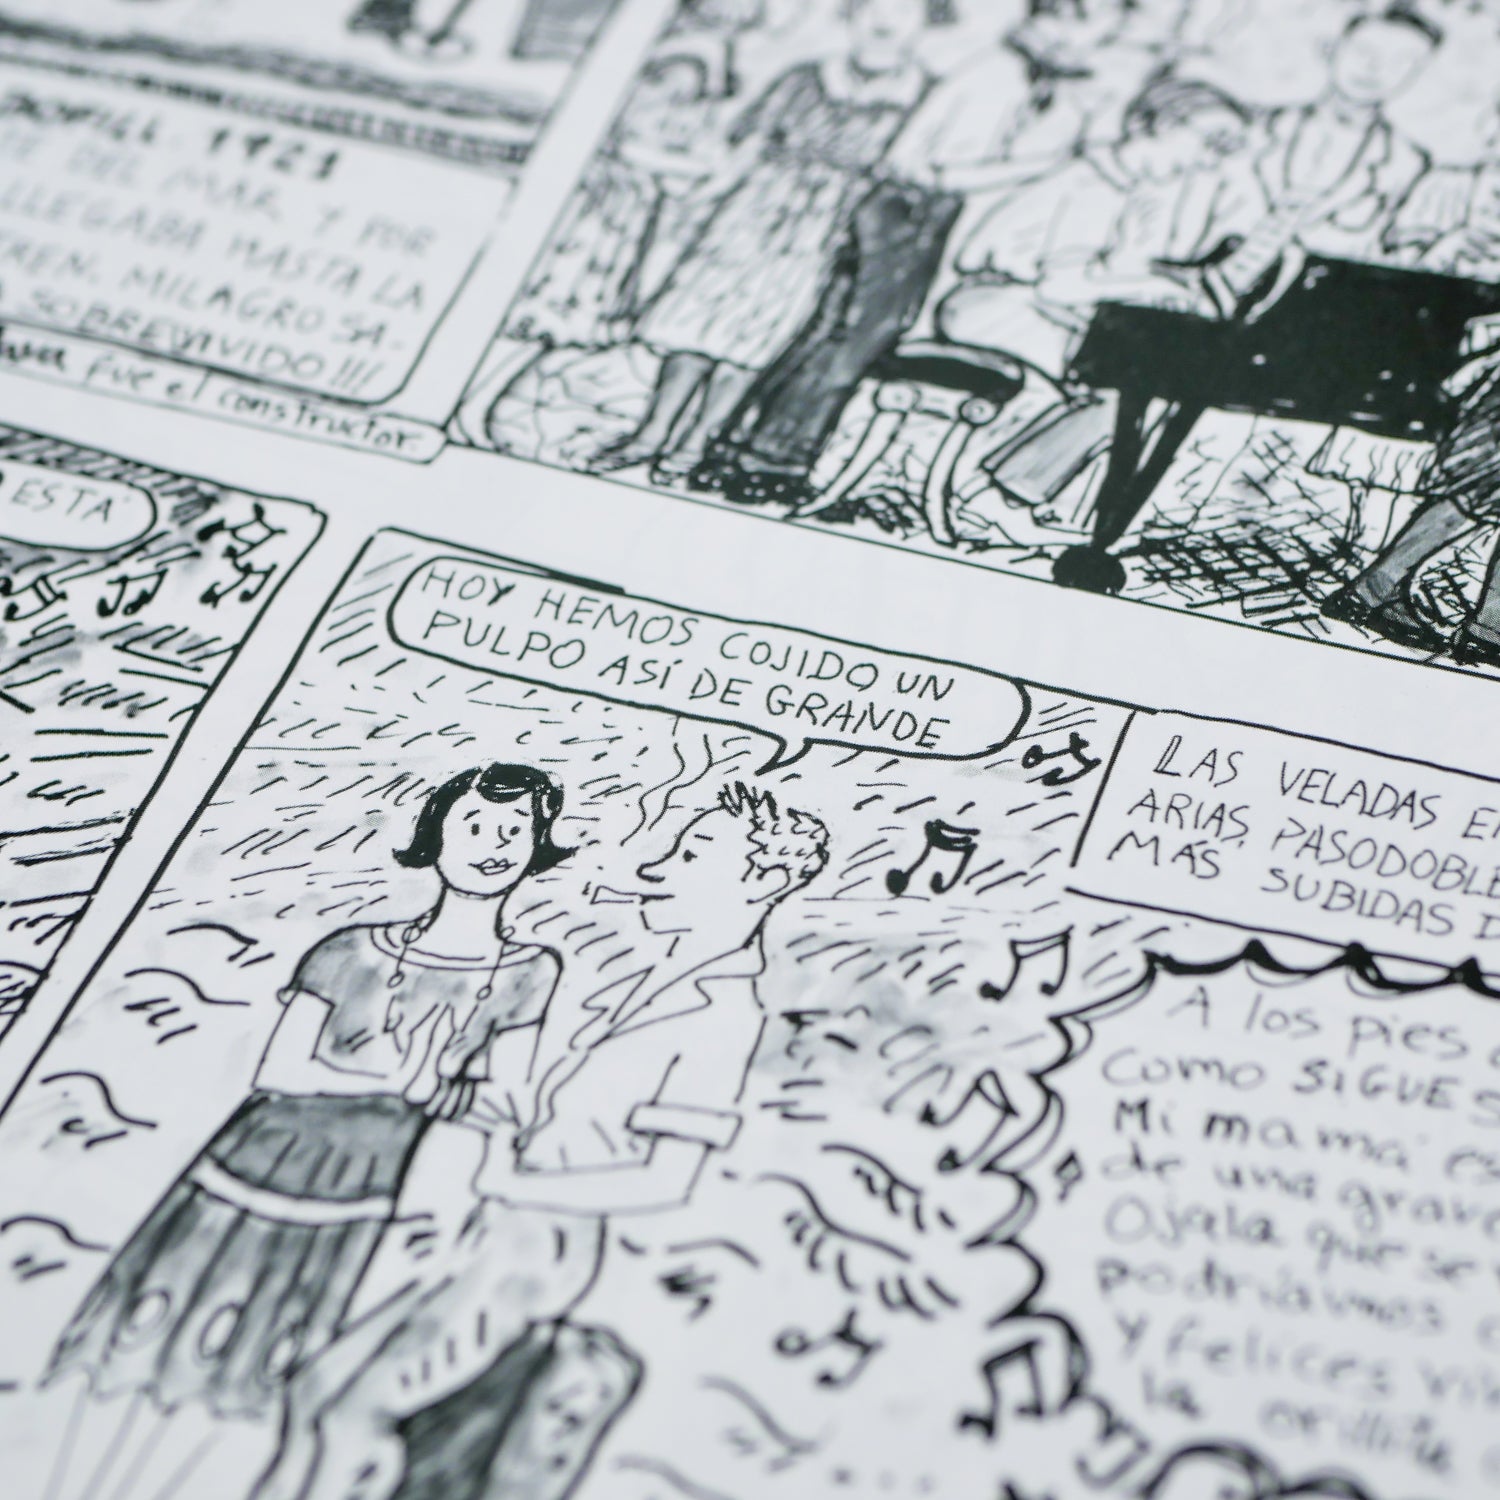 1921
DEL MAR, Y POR
LLEGABA HASTA LA
TREN. MILAGRO SA-
SOBREVIVIDO!!!
fue el constructor.
ESTÁ
HOY HEMOS COJIDO UN
PULPO ASÍ DE GRANDE
LAS VELADAS
ARIAS, PASODOBLE
MÁS SUBIDAS
A los pies
como SIGUE
Mi mamá
de una grave
Ojala que se
podríamos
y felices
la orillita